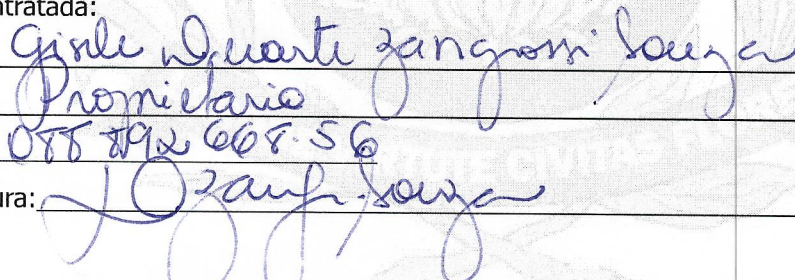 ntratada:
Gisele Duarte Zangrossi Souza
Proprietario
088 892 668.56
ura: D Zang. Souza